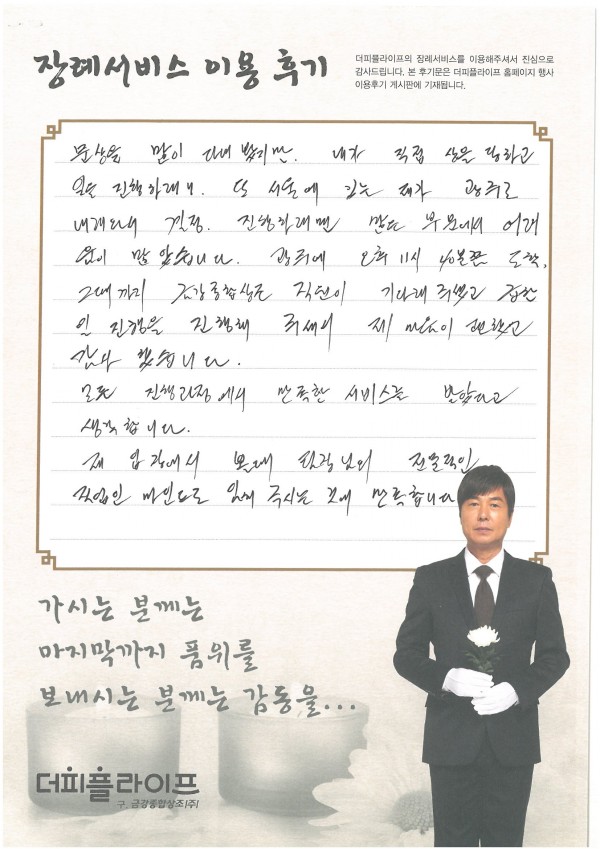 장례서비스 이용 후기
더피플라이프의 장례서비스를 이용해주셔서 진심으로
감사드립니다. 본 후기문은 더피플라이프 홈페이지 행사
이용후기 게시판에 기재됩니다.
문상을 많이 다녀 봤지만. 내가 직접 상을 당하고
일을 진행하려니. 또 서울에 있는 제가 광주로
내려와서 걱정. 진행하려면 모든 부분에서 어려
움이 많았습니다. 광주에 오후 11시 40분쯤 도착,
그때까지 금강종합상조 직원이 기다려주셨고
진행을 진행해 주셔서 제 마음이 편했고
감사 했습니다.
모든 진행과정에서 만족한 서비스를 받았다고
생각합니다.
제 입장에서 볼때 팀장님의
직업인 마인드로 일해 주시는 것에 만족합니다
가시는 분께는
마지막까지 품위를
보내시는 분께는 감동을...
더피플라이프
구. 금강종합상조(주)